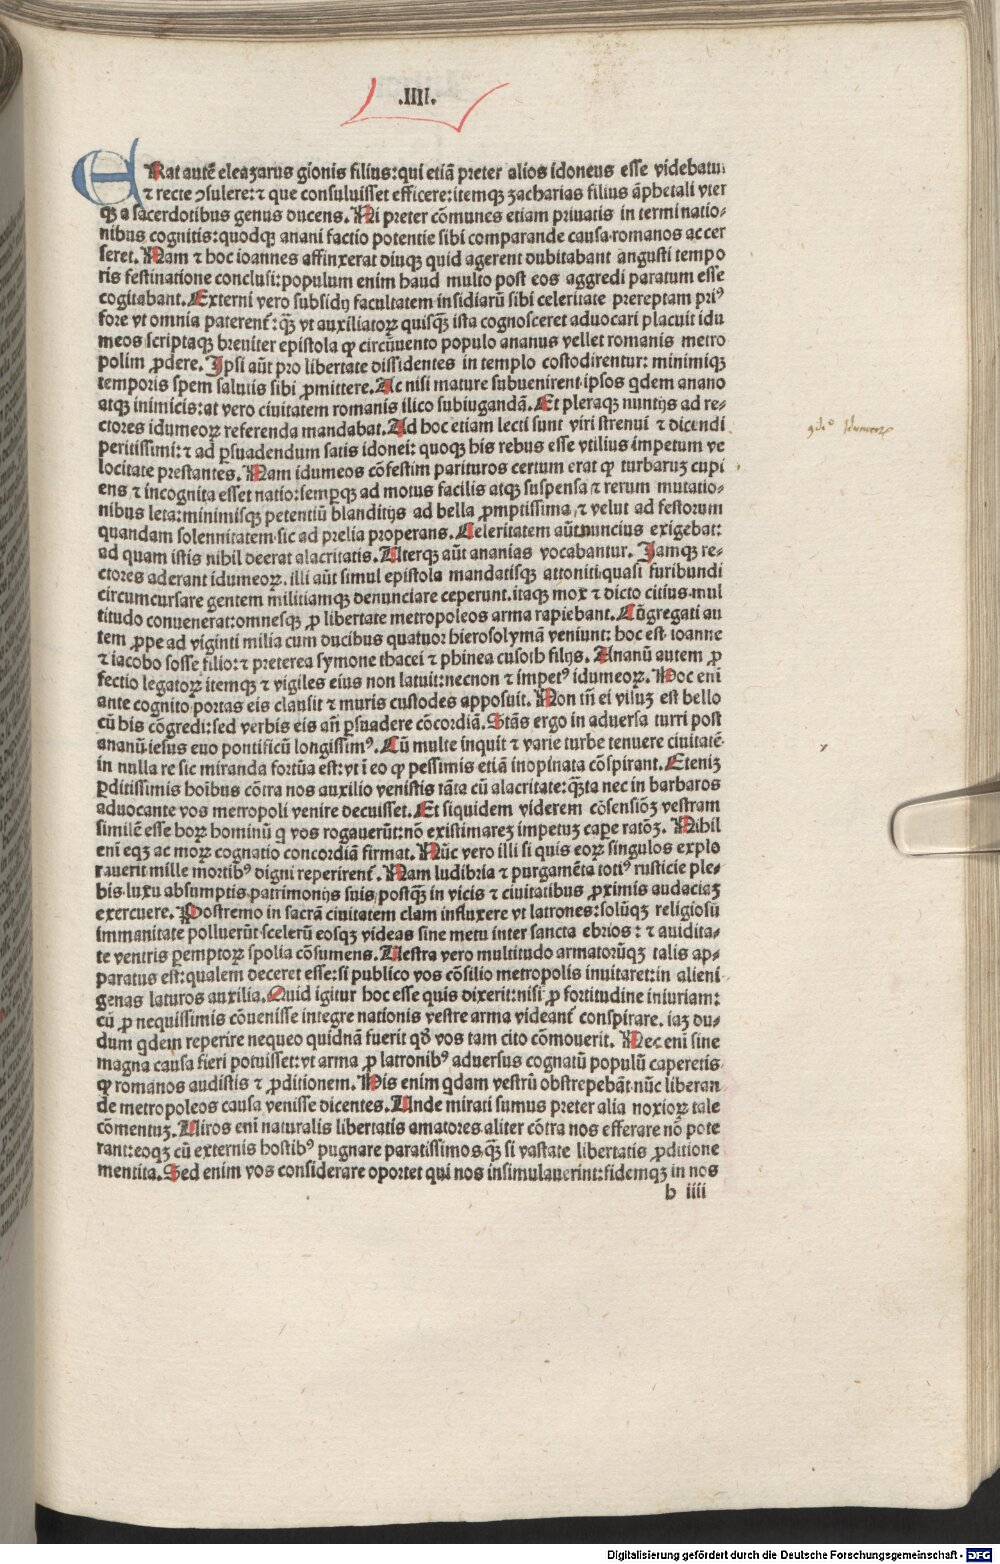 .IIII.
ERat autē eleazarus gionis filius:qui etiā preter alios idoneus esse videbatur
⁊ recte ↄsulere:⁊ que consuluisset efficere:itemqꝫ zacharias filius āphetali vter
qꝫ a sacerdotibus genus ducens. Hi preter cōmunes etiam priuatis in terminatio⸗
nibus cognitis:quodqꝫ anani factio potentie sibi comparande causa romanos accer
seret. Nam ⁊ hoc ioannes affinxerat diuqꝫ quid agerent dubitabant angusti tempo
ris festinatione conclusi:populum enim haud multo post eos aggredi paratum esse
cogitabant. Externi vero subsidij facultatem insidiarū sibi celeritate prereptam priꝰ
fore vt omnia paterent᷑:qꝫ̄ vt auxiliatoꝝ quisqꝫ̄ ista cognosceret aduocari placuit idu
meos scriptaqꝫ breuiter epistola ꝙ circūuento populo ananus vellet romanis metro
polim ꝓdere. Ipsi aūt pro libertate dissidentes in templo costodirentur: minimiqꝫ
temporis spem salutis sibi ꝓmittere. Ac nisi mature subuenirent ipsos qdem anano
atqꝫ inimicis:at vero ciuitatem romanis ilico subiugandā. Et pleraqꝫ nuntijs ad re⸗
ctores idumeoꝝ referenda mandabat. Ad hoc etiam lecti sunt viri strenui ⁊ dicendi
peritissimi:⁊ ad ꝑsuadendum satis idonei: quoqꝫ his rebus esse vtilius impetum ve
locitate prestantes. Nam idumeos cōfestim parituros certum erat ꝙ turbaruꝫ cupi
ens ⁊ incognita esset natio:semꝑqꝫ ad motus facilis atqꝫ suspensa ⁊ rerum mutatio⸗
nibus leta:minimisqꝫ petentiū blanditijs ad bella ꝓmptissima ⁊ velut ad festorum
quandam solennitatem sic ad prelia properans. Celeritatem aūt nuncius exigebat:
ad quam istis nihil deerat alacritatis. Uterqꝫ aūt ananias vocabantur. Jamqꝫ re⸗
ctores aderant idumeoꝝ. illi aūt simul epistola mandatisqꝫ attoniti quasi furibundi
circumcursare gentem militiamqꝫ denunciare ceperunt. itaqꝫ mox ⁊ dicto citius mul
titudo conuenerat:omnesqꝫ ꝓ libertate metropoleos arma rapiebant. Cūgregati au
tem ꝓpe ad viginti milia cum ducibus quatuor hierosolymā veniunt: hoc est ioanne
⁊ iacobo sosse filio:⁊ preterea symone thacei ⁊ phinea cusoth filijs. Ananū autem ꝓ
fectio legatoꝝ itemqꝫ ⁊ vigiles eius non latuit:necnon ⁊ impetꝰ idumeoꝝ. Hoc enī
ante cognito portas eis clausit ⁊ muris custodes apposuit. Non tn̄ ei visuꝫ est bello
cū his cōgredi:sed verbis eis añ ꝑsuadere cōcordiā. Stās ergo in aduersa turri post
ananū iesus euo pontificū longissimꝰ. Cū multe inquit ⁊ varie turbe tenuere ciuitatē
in nulla re sic miranda fortūa est:vt ī eo ꝙ pessimis etiā inopinata cōspirant. Eteniꝫ
ꝑditissimis hoībus cōtra nos auxilio venistis tāta cū alacritate:qꝫ̄ta nec in barbaros
aduocante vos metropoli venire decuisset. Et siquidem viderem cōsensiōꝫ vestram
similē esse hoꝝ hominū q vos rogauerūt:nō existimareꝫ impetuꝫ caꝑe ratōꝫ. Nihil
enī eqꝫ ac moꝝ cognatio concordiā firmat. Nūc vero illi si quis eoꝝ singulos explo
rauerit mille mortibꝰ digni reperirent᷑. Nam ludibria ⁊ purgamēta totiꝰ rusticie ple⸗
bis luxu absumptis patrimonijs suis postqꝫ̄ in vicis ⁊ ciuitatibus ꝓximis audaciaꝫ
exercuere. Postremo in sacrā ciuitatem clam influxere vt latrones:solūqꝫ religiosū
immanitate polluerūt scelerū eosqꝫ videas sine metu inter sancta ebrios: ⁊ auidita⸗
te ventris ꝑemptoꝝ spolia cōsumens. Uestra vero multitudo armatorūqꝫ talis ap⸗
paratus est:qualem deceret esse:si publico vos cōsilio metropolis inuitaret:in alieni
genas laturos auxilia. Quid igitur hoc esse quis dixerit:nisi ꝓ fortitudine iniuriam:
cū ꝓ nequissimis cōuenisse integre nationis vestre arma videant᷑ conspirare. iaꝫ du⸗
dum qdem reperire nequeo quidnā fuerit qđ vos tam cito cōmouerit. Nec enī sine
magna causa fieri potuisset:vt arma ꝓ latronibꝰ aduersus cognatū populū caperetis
ꝙ romanos audistis ⁊ ꝓditionem. His enim qdam vestrū obstrepebāt nūc liberan
de metropoleos causa venisse dicentes. Unde mirati sumus preter alia noxioꝝ tale
cōmentuꝫ. Uiros enī naturalis libertatis amatores aliter cōtra nos efferare nō pote
rant:eoqꝫ cū externis hostibꝰ pugnare paratissimos qꝫ̄ si vastate libertatis ꝓditione
mentita. Sed enim vos considerare oportet qui nos insimulauerint:fidemqꝫ in nos
b iiii
Digitalisierung gefördert durch die Deutsche Forschungsgemeinschaft - DFG